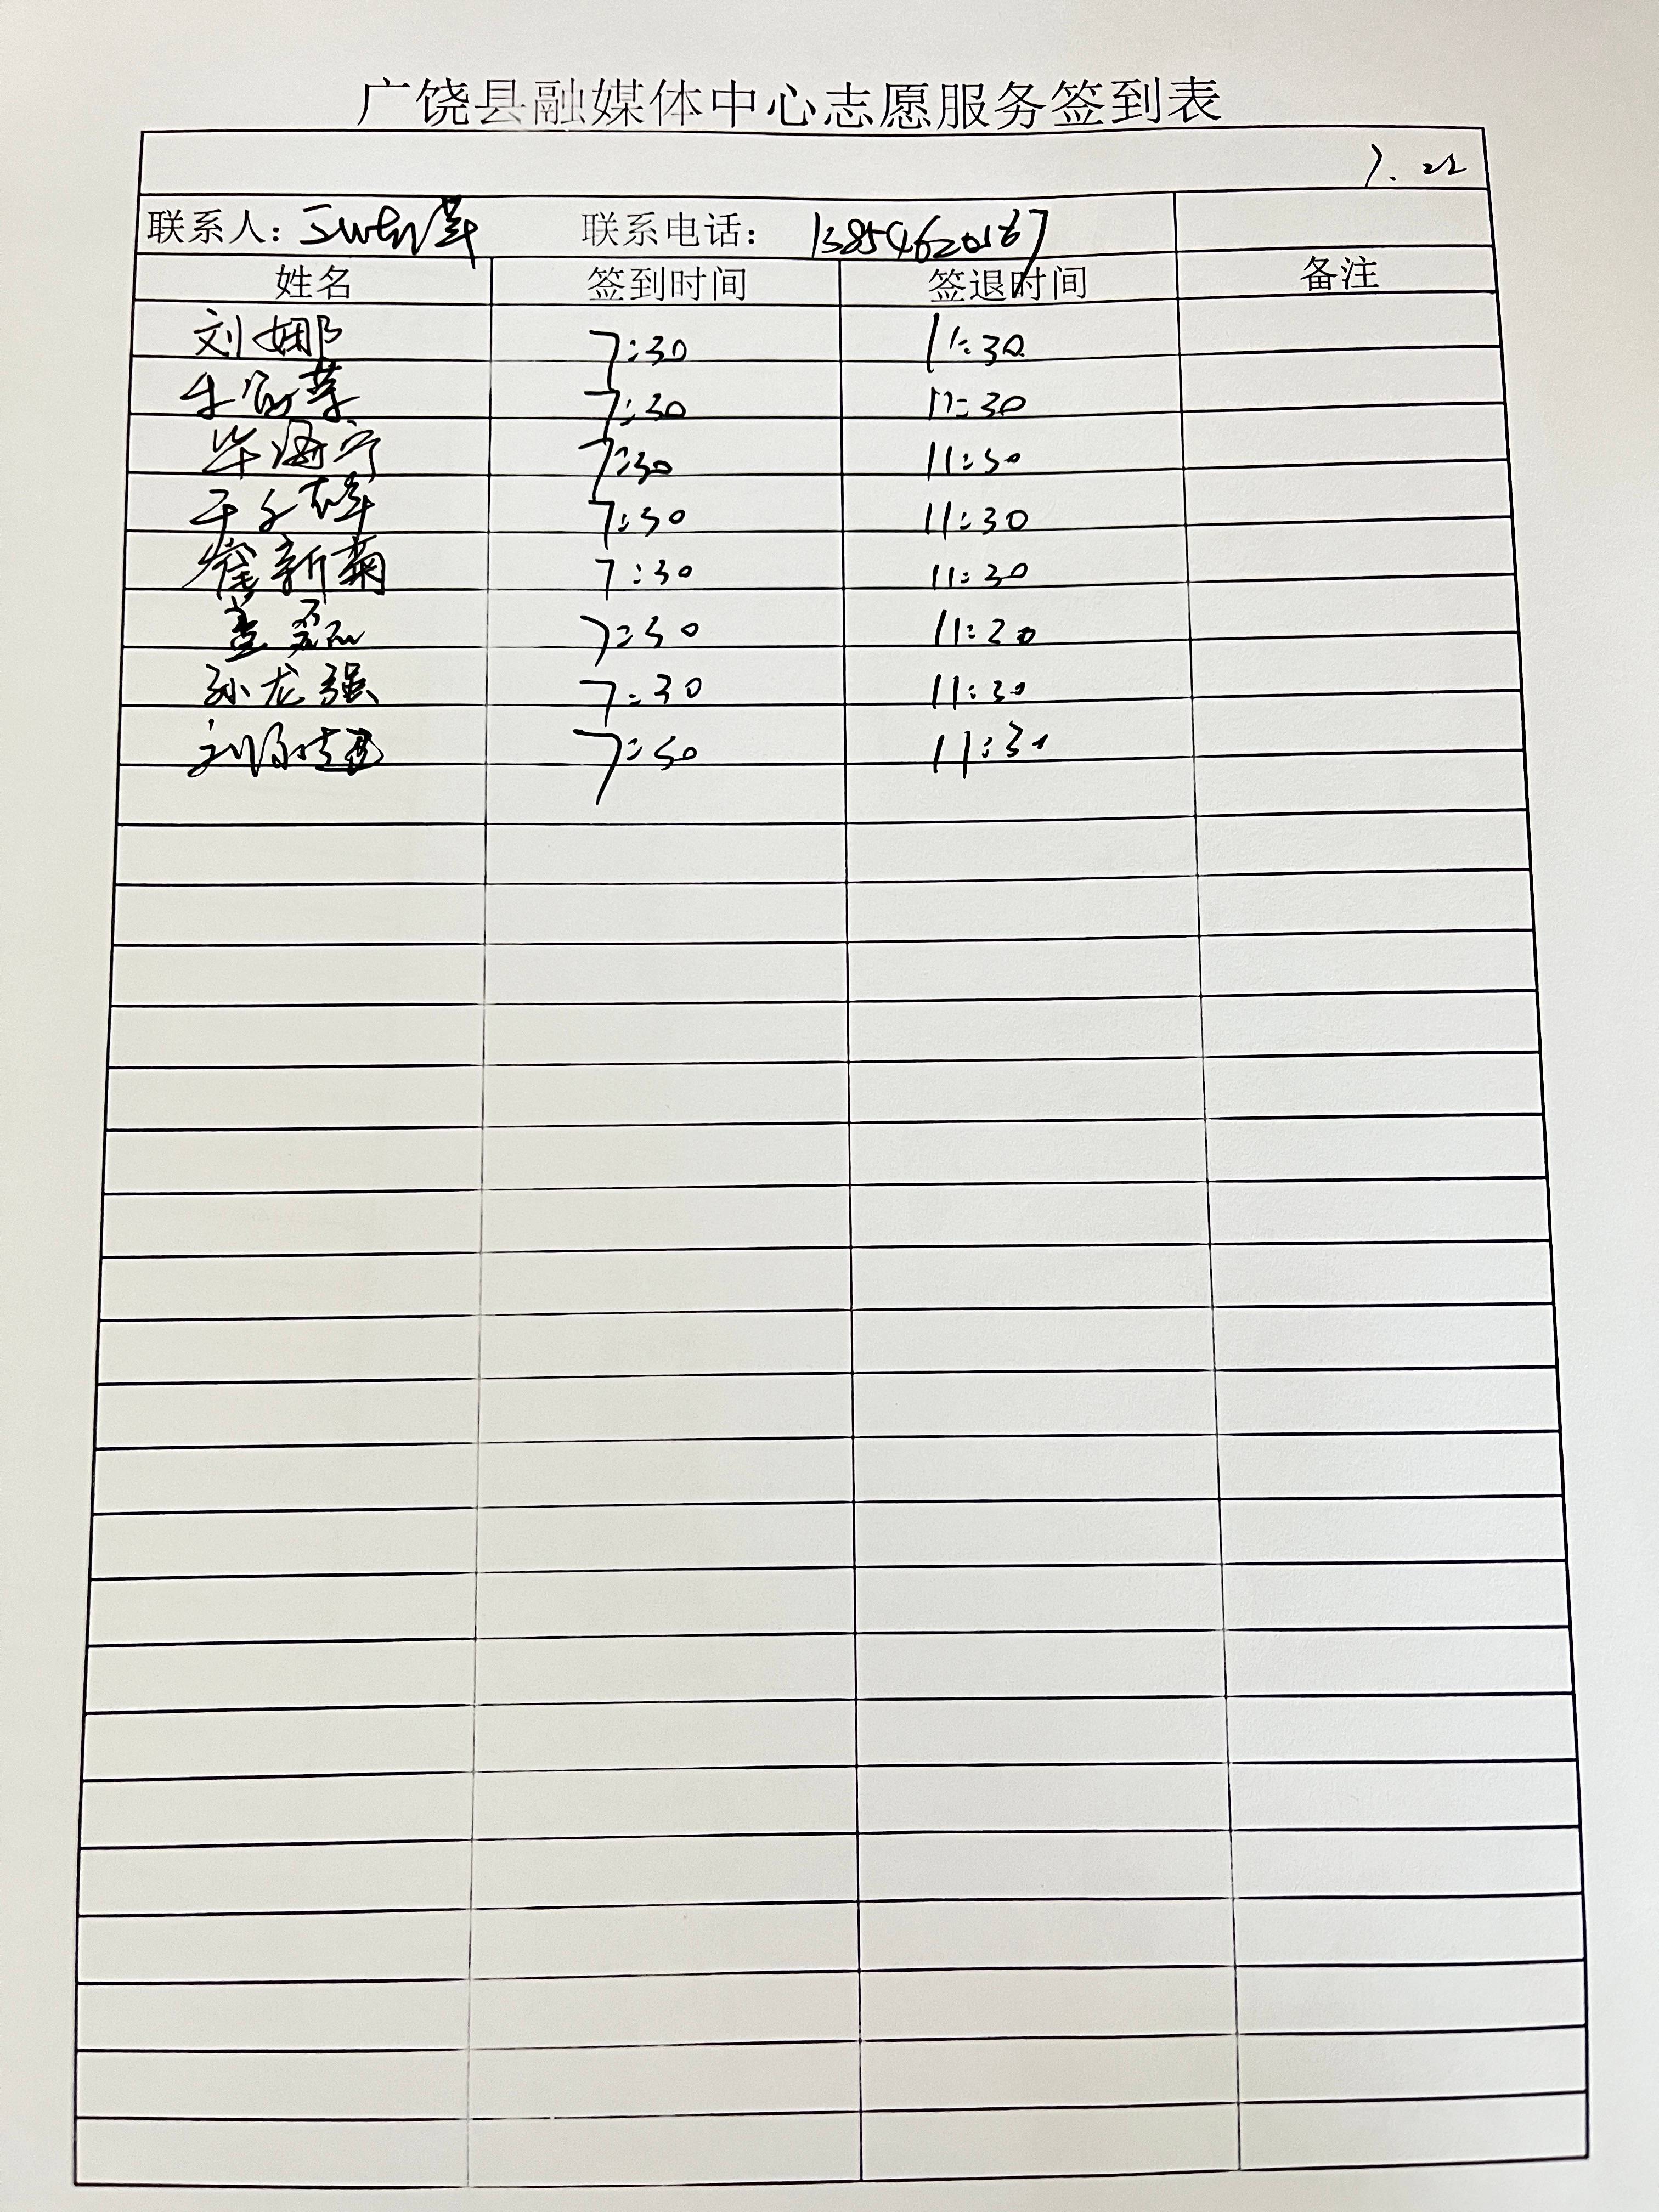 广饶县融媒体中心志愿服务签到表
7.22
联系人： 联系电话： 13854620167
姓名 签到时间 签退时间 备注
刘娜 7:30 11:30
7:30 11:30
毕海宁 7:30 11:30
7:30 11:30
崔新菊 7:30 11:30
董磊 7:30 11:30
孙龙强 7:30 11:30
7:30 11:30